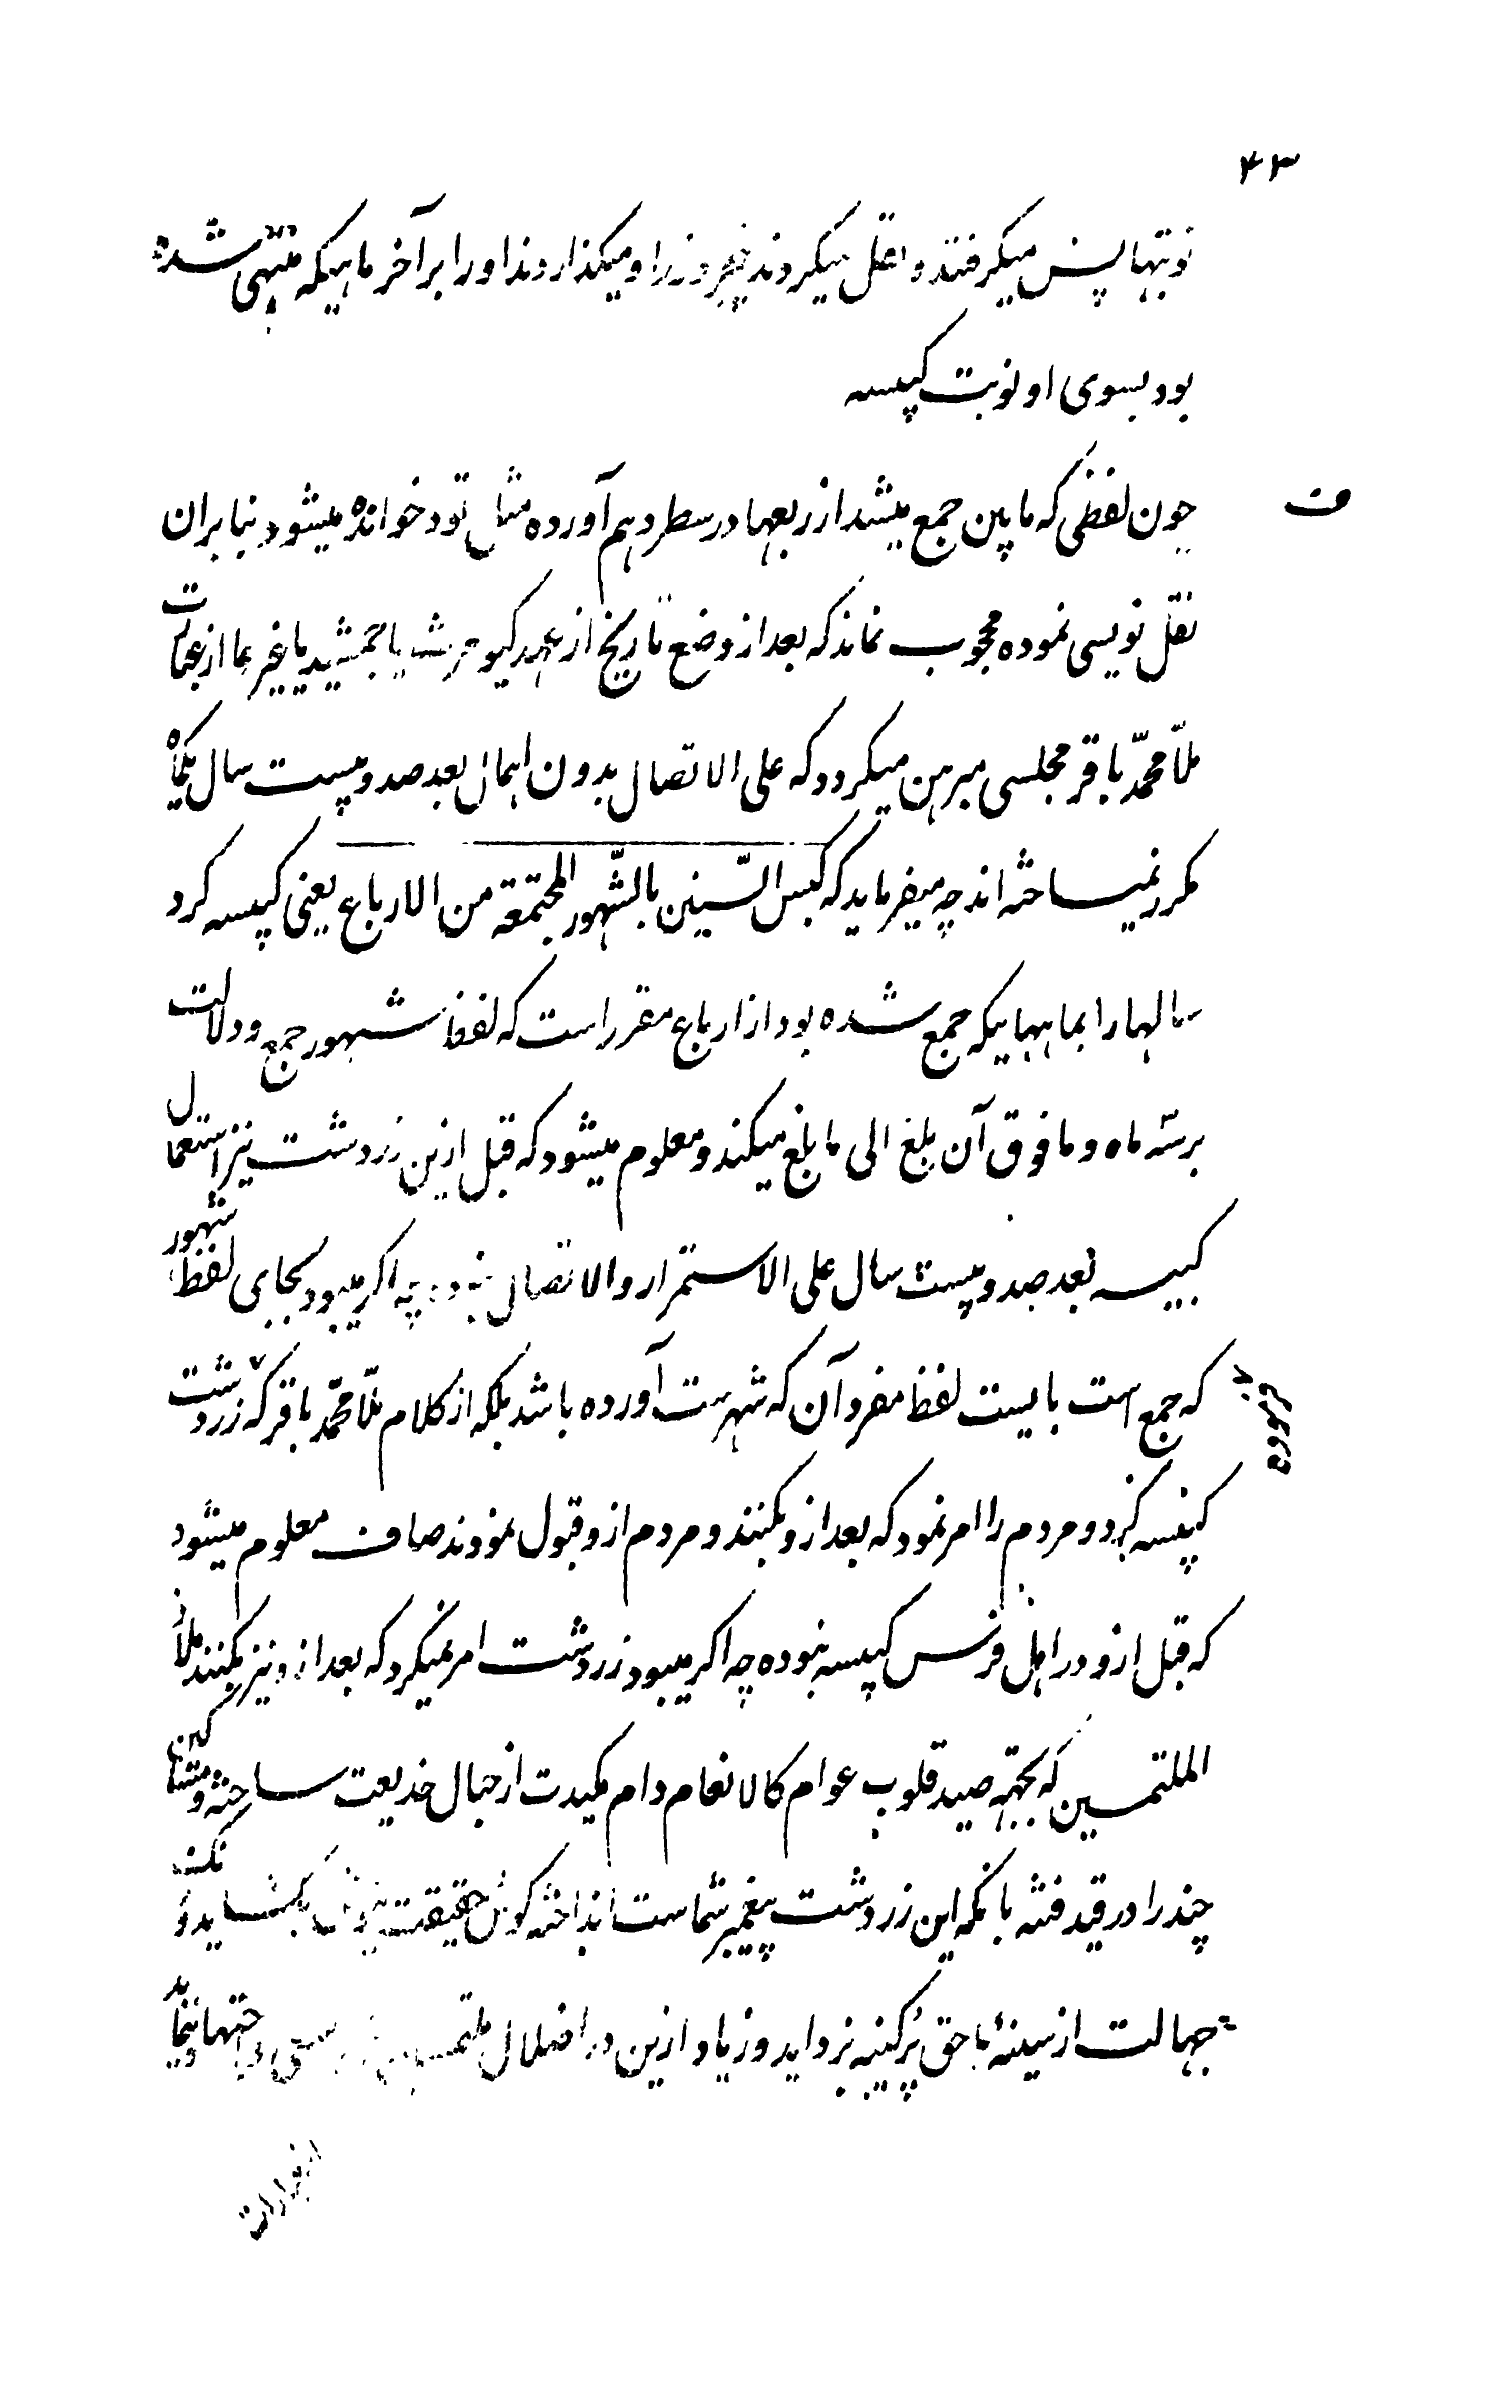 ۴۳
نوبتها پس میکرفتند و نقل میکردند پنجروز را و میکذاردند او را بر آخر ماهیکه منتهی شده
بود بسوی او نوبت کبیسه
ف
چون لفظی که مابین جمع میشد از ربعها در سطر دهم آورده مثل تود خوانده میشود بنابران
نقل نویسی نموده محجوب نماند که بعد از وضع تاریخ از عهد کیومرث یا جمشید یا غیرهما از عبارت
ملّا محمّد باقر مجلسی مبرهن میکردد که علی الاتصال بدون اهمال بعد صد و بیست سال یکماه
مکرر نمیساخته اند چه میفرماید که کبس السّنین بالشّهور المجتمعة من الارباع یعنی کبیسه کرد
سالها را بماههاییکه جمع شده بود از ارباع مقرر است که لفظ شهور جمع و دلالت
بر سّه ماه و مافوق آن بلغ الی ما بلغ میکند و معلوم میشود که قبل ازین زردشت نیز استعمال
کبیسه بعد صد و بیست سال علی الاستمرار والاتصال نبوده چه اکر میبود بجای لفظ شهور
که جمع است بایست لفظ مفرد آن که شهر ست آورده باشد بلکه از کلام ملّا محمّد باقر که زردشت
کبیسه کرد و مردم را امر نمود که بعد ازو بکنند و مردم ازو قبول نمودند صاف معلوم میشود
که قبل ازو در اهل فرس کبیسه نبوده چه اکر میبود زردشت امر نمیکرد که بعد ازو نیز بکنند ملاذ
الملتمسین که بجهته صید قلوب عوام کالانعام دام مکیدت از حبال خدیعت ساخته و مشتاقین
چند را در قید فتنه بانکه این زردشت پیغمبر شماست انداخته کوش حقیقت نیوش بکشاید و زنک
جهالت از سینهٔ با حق پُر کینه بزداید و زیاد ازین در اضلال ملتمسین سعی و اجتهاد ننماید